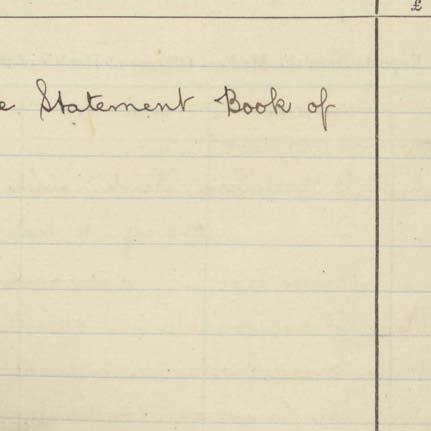 £
e Statement Book of